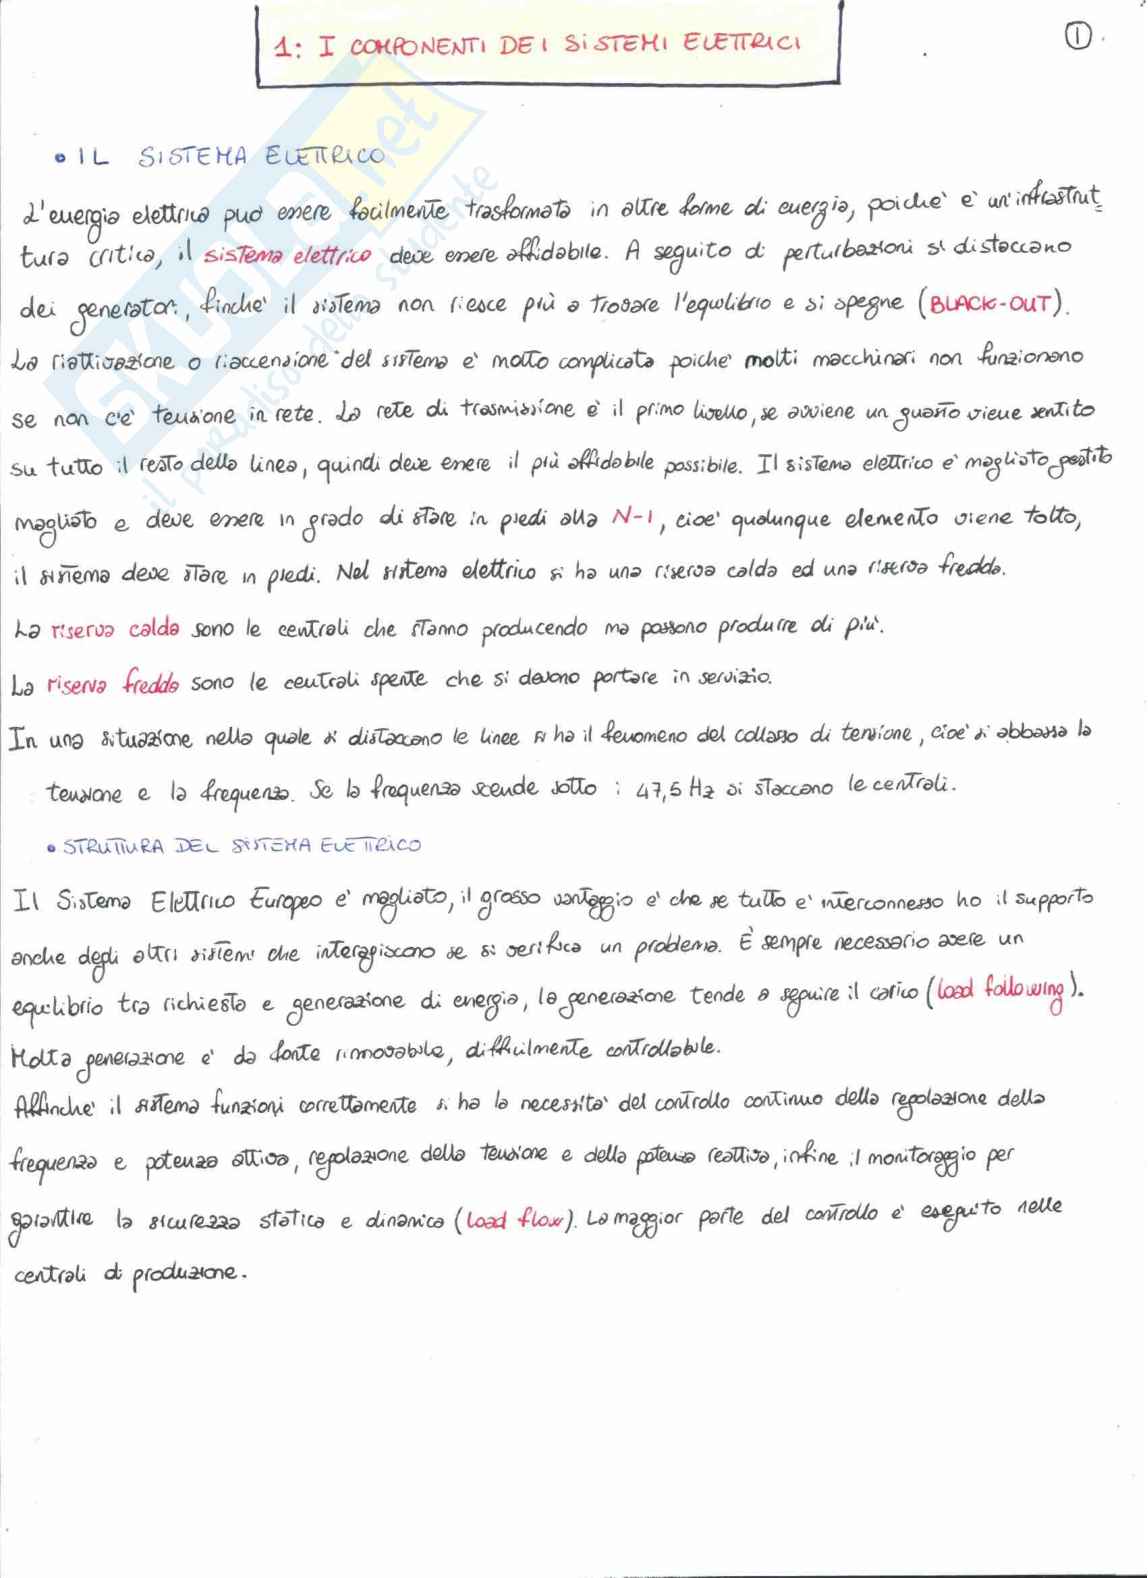 1: I COMPONENTI DEI SISTEMI ELETTRICI
1
• IL SISTEMA ELETTRICO
L'energia elettrica può essere facilmente trasformata in altre forme di energia, poichè è un'infrastrut
tura critica, il sistema elettrico deve essere affidabile. A seguito di perturbazioni si distaccano
dei generatori, finchè il sistema non riesce più a trovare l'equilibrio e si spegne (BLACK-OUT).
La riattivazione o riaccensione del sistema è molto complicata poichè molti macchinari non funzionano
se non c'è tensione in rete. La rete di trasmissione è il primo livello, se avviene un guasto viene sentito
su tutto il resto della linea, quindi deve essere il più affidabile possibile. Il sistema elettrico è magliato gestito
magliato e deve essere in grado di stare in piedi alla N-1, cioè qualunque elemento viene tolto,
il sistema deve stare in piedi. Nel sistema elettrico si ha una riserva calda ed una riserva fredda.
La riserva calda sono le centrali che stanno producendo ma possono produrre di più.
La riserva fredda sono le centrali spente che si devono portare in servizio.
In una situazione nella quale si distaccano le linee si ha il fenomeno del collasso di tensione, cioè si abbassa la
tensione e la frequenza. Se la frequenza scende sotto i 47,5 Hz si staccano le centrali.
• STRUTTURA DEL SISTEMA ELETTRICO
Il Sistema Elettrico Europeo è magliato, il grosso vantaggio è che se tutto è interconnesso ho il supporto
anche degli altri sistemi che interagiscono se si verifica un problema. È sempre necessario avere un
equilibrio tra richiesta e generazione di energia, la generazione tende a seguire il carico (load following).
Molta generazione è da fonte rinnovabile, difficilmente controllabile.
Affinchè il sistema funzioni correttamente si ha la necessità del controllo continuo della regolazione della
frequenza e potenza attiva, regolazione della tensione e della potenza reattiva, infine il monitoraggio per
garantire la sicurezza statica e dinamica (load flow). La maggior parte del controllo è eseguito nelle
centrali di produzione.
SKUOLA.net
il paradiso dello studente